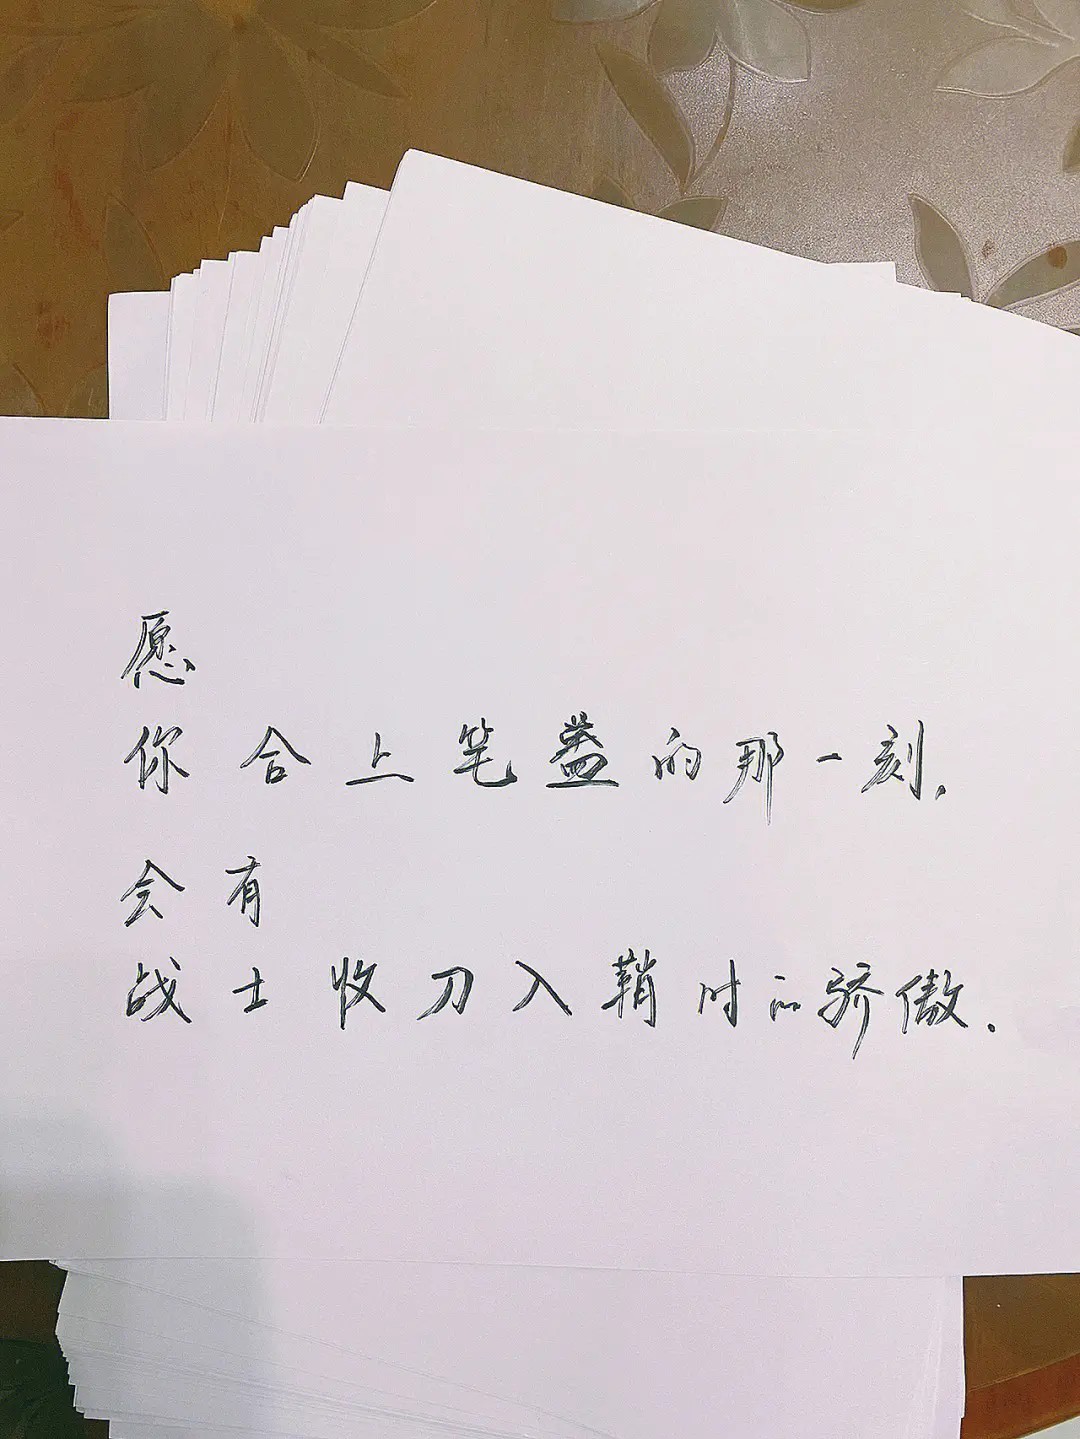 愿
你合上笔盖的那一刻,
会有
战士收刀入鞘时的骄傲.